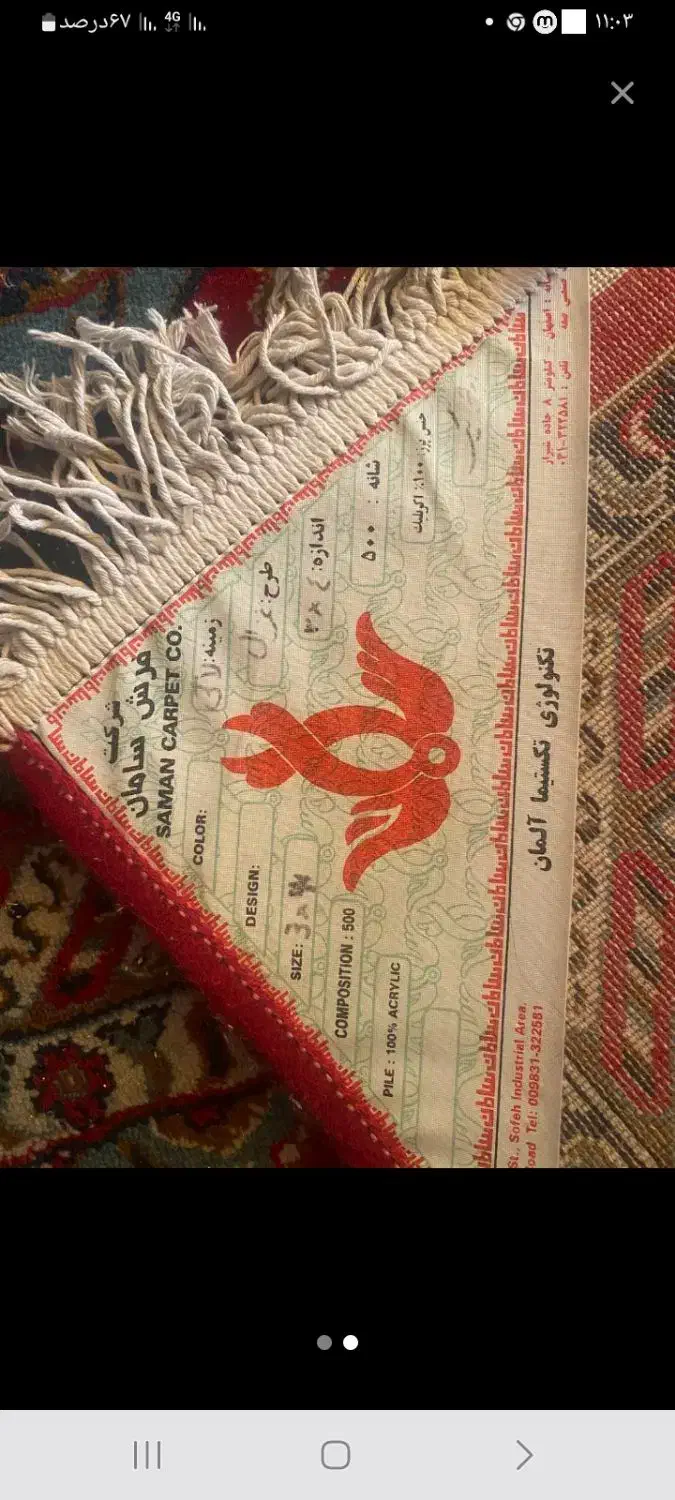 ۶۷درصد
4G
۱۱:۰۳
شرکت
فرش سامان
SAMAN CARPET CO.
زمینه:
COLOR:
طرح:
DESIGN:
اندازه: ۳×۴
SIZE: 3×4
شانه : ۵۰۰
COMPOSITION : 500
جنس پرز: ۱۰۰٪ اکریلیک
PILE : 100% ACRYLIC
تکنولوژی تکستیما آلمان
اصفهان کیلومتر ۸ جاده شیراز
تلفن : ۰۳۱-۳۲۲۵۸۱
St., Sofeh Industrial Area,
oad Tel: 009831-322581